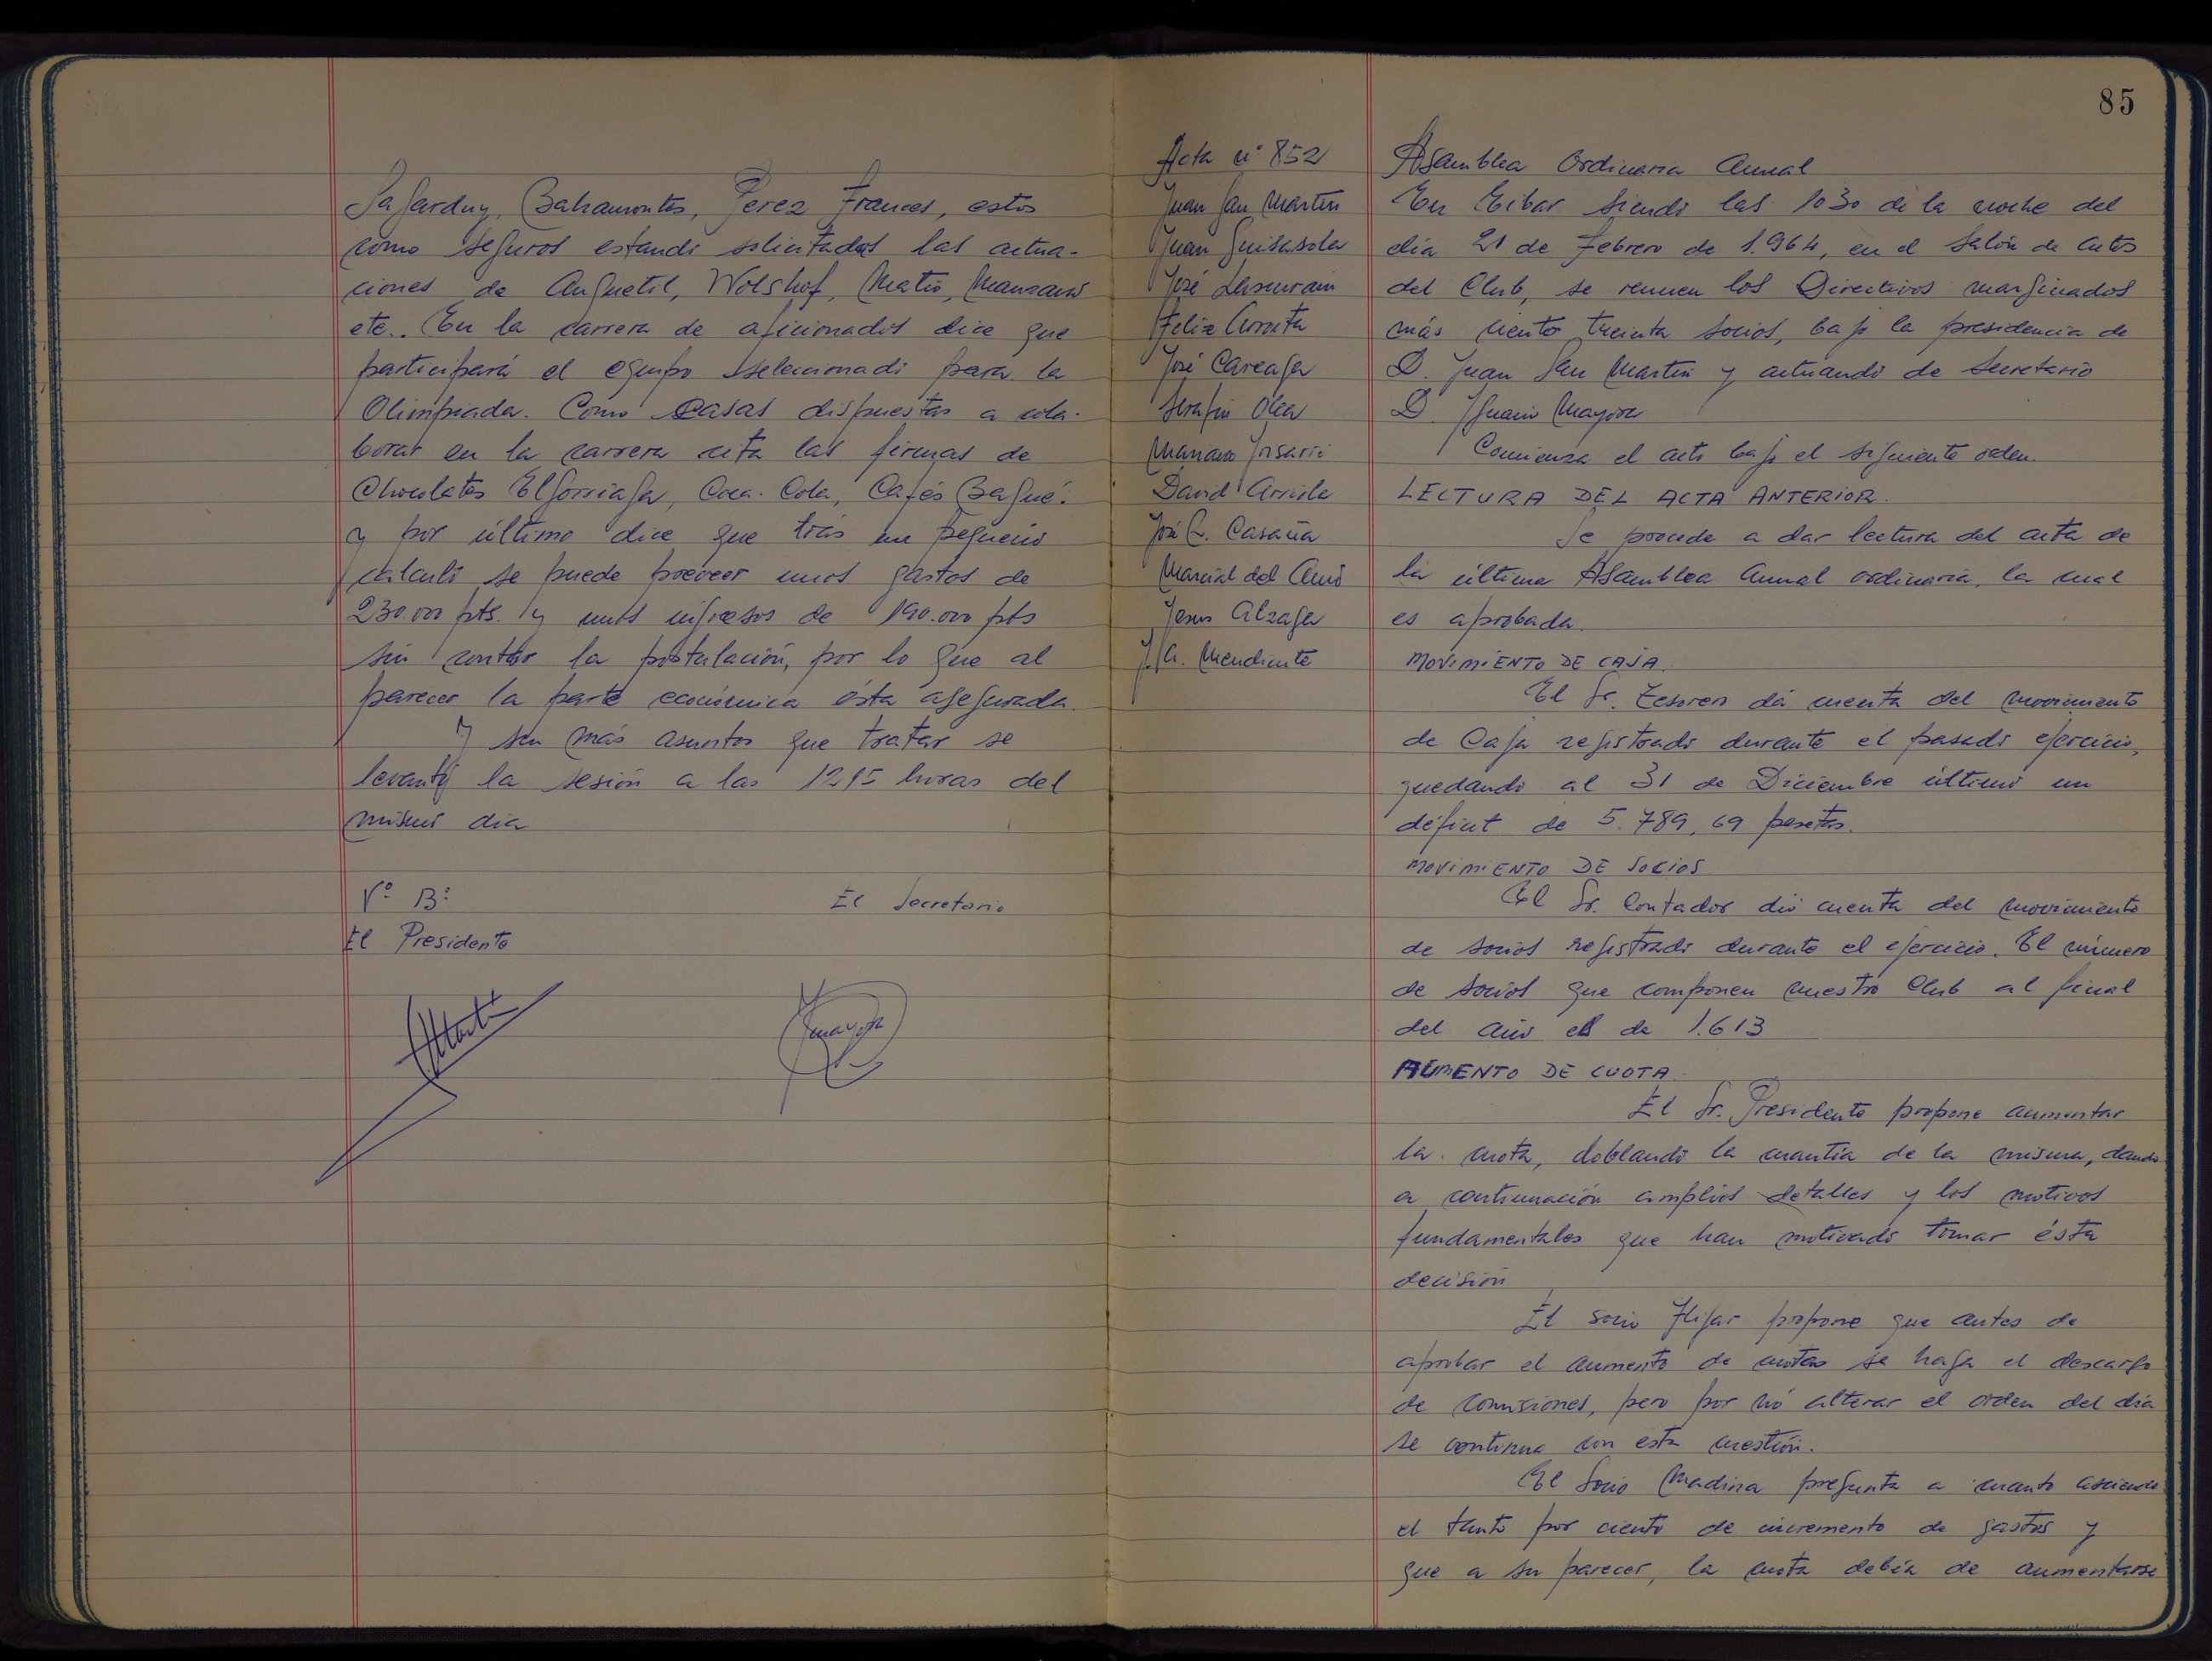 Sagarduy, Bahamontes, Perez Frances, estos
como seguros estando solicitadas las actua-
ciones de Anquetil, Wolshof, Matio, Manzano
etc.. En la carrera de aficionados dice que
participará el equipo selecionado para la
Olimpiada. Como casas dispuestas a cola-
borar en la carrera cita las firmas de
Chocolates Elgorriaga, Coca-Cola, Cafés Bagué.
y por último dice que trás un pequeño
calculo se puede preveer unos gastos de
230.000 pts. y unos ingresos de 190.000 pts
sin contar la postulación, por lo que al
parecer la parte económica ésta asegurada.
Y sin más asuntos que tratar se
levantó la sesión a las 12,15 horas del
mismo dia
Vº Bº
El Secretario
El Presidente
85
Acta nº 852
Juan San Martin
Juan Guisasola
José
Felix Arrieta
José Careaga
Serafin Olea
Mariano
David Arriola
José L. Casaña
Marcial del Amo
Jesus Alzaga
J.A. Mendicute
Asamblea Ordinaria Anual
En Eibar siendo las 1030 de la noche del
día 21 de Febrero de 1.964, en el Salón de Actos
del Club, se reunen los Directivos marginados
más ciento treinta socios, bajo la presidencia de
D. Juan San Martin y actuando de Secretario
D. Ignacio Mayora
Comienza el acto bajo el siguiente orden.
LECTURA DEL ACTA ANTERIOR.
Se procede a dar lectura del acta de
la última Asamblea Anual ordinaria, la cual
es aprobada.
MOVIMIENTO DE CAJA.
El Sr. Tesorero dá cuenta del movimiento
de Caja registrado durante el pasado ejercicio,
quedando al 31 de Diciembre último un
déficit de 5.789,69 pesetas.
MOVIMIENTO DE SOCIOS.
El Sr. Contador dió cuenta del movimiento
de socios registrado durante el ejercicio. El número
de socios que componen nuestro Club al final
del año es de 1.613
AUMENTO DE CUOTA.
El Sr. Presidente propone aumentar
la cuota, doblando la cuantía de la misma, dando
a continuación amplios detalles y los motivos
fundamentales que han motivado tomar ésta
decisión
El socio propone que antes de
aprobar el aumento de cuotas se haga el descargo
de comisiones, pero por nó alterar el orden del día
se continua con esta cuestión.
El Socio Madina pregunta a cuanto asciende
el tanto por ciento de incremento de gastos y
que a su parecer, la cuota debía de aumentarse